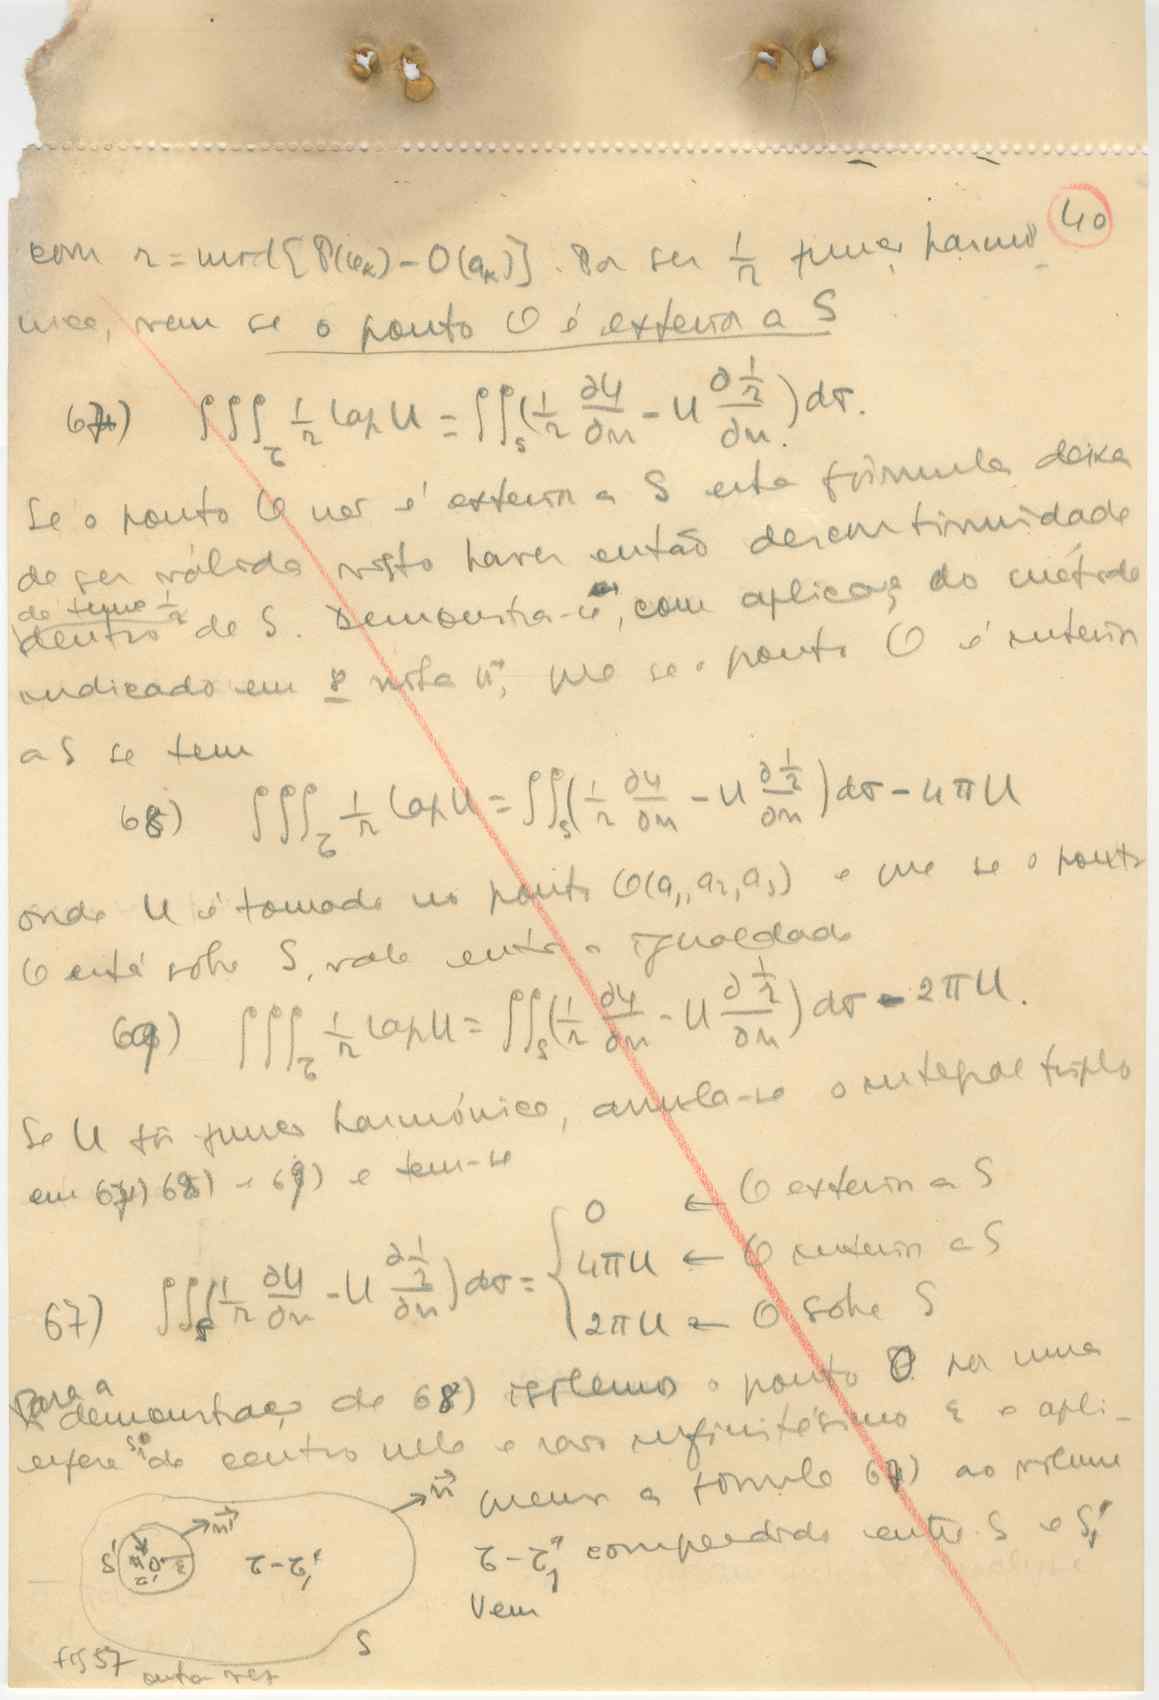 40
com r = mod{P(xₖ) - O(aₖ)}. Por ser 1/r função harmó-
nica, vem se o ponto O é exterior a S
67) ∫∫∫_τ 1/r lap U = ∫∫_S (1/r ∂U/∂n - U ∂(1/r)/∂n) dσ.
Se o ponto O não é exterior a S esta fórmula deixa
de ser válida visto haver então descontinuidade
de função 1/r
dentro de S. Demonstra-se, com aplicação do método
indicado em 8 nota 11, que se o ponto O é interior
a S se tem
68) ∫∫∫_τ 1/r lap U = ∫∫_S (1/r ∂U/∂n - U ∂(1/r)/∂n) dσ - 4πU
onde U é tomado no ponto O(a₁, a₂, a₃) e que se o ponto
O está sobre S, vale então a igualdade
69) ∫∫∫_τ 1/r lap U = ∫∫_S (1/r ∂U/∂n - U ∂(1/r)/∂n) dσ - 2πU.
Se U for função harmónica, anula-se o integral triplo
em 67) 68) e 69) e tem-se
67) ∫∫_S (1/r ∂U/∂n - U ∂(1/r)/∂n) dσ = { 0 ← O exterior a S
4πU ← O interior a S
2πU ← O sobre S
Para a demonstração de 68) isolemos o ponto O por uma
esfera S' de centro nele e raio infinitésimo ε e apli-
quemos a fórmula 67) ao volume
τ - τ₁' compreendido entre S e S₁'
Vem
n
n'
S' O ε τ'
τ - τ₁'
S
fig 57
outra vez